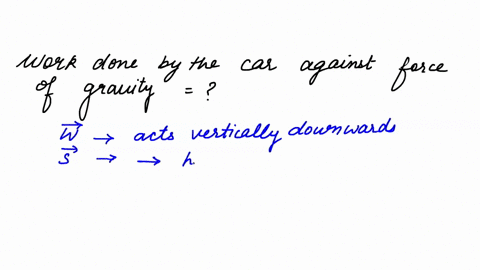 Work done by the car against force
of gravity = ?
W → acts vertically downwards
S → → h